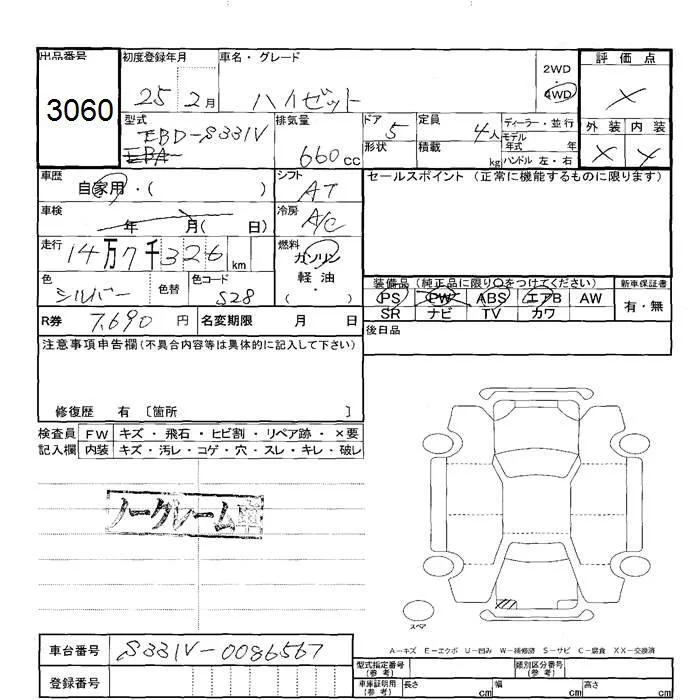 出品番号 初度登録年月 車名・グレード 2WD 評価点
3060 25年 2月 ハイゼット 4WD ×
型式 排気量 ドア 定員 ディーラー・並行 外装 内装
EBD-S331V 660cc 5 4人 モデル年式 年 × ×
EBA- 形状 積載 kg ハンドル 左・右
車歴 シフト セールスポイント (正常に機能するものに限ります)
自家用・( ) AT
車検 冷房
年 月( 日) A/C
走行 燃料
14万7千326km ガソリン
色 色替 色コード 軽油 装備品 (純正品に限り○をつけてください) 新車保証書
シルバー S28 ( ・ ) PS PW ABS エアB AW 有・無
SR ナビ TV カワ
R券 7,690円 名変期限 月 日 後日品
注意事項申告欄(不具合内容等は具体的に記入して下さい)
修復歴 有 〔箇所 〕
検査員 FW キズ・飛石・ヒビ割・リペア跡・×要
記入欄 内装 キズ・汚レ・コゲ・穴・スレ・キレ・破レ
ノークレーム車
スペア
A-キズ E-エクボ U-凹み W-補修跡 S-サビ C-腐食 XX-交換済
車台番号 S331V-0086567 型式指定番号(参考) 類別区分番号(参考)
登録番号 車庫証明用(参考) 長さ cm 幅 cm 高さ cm